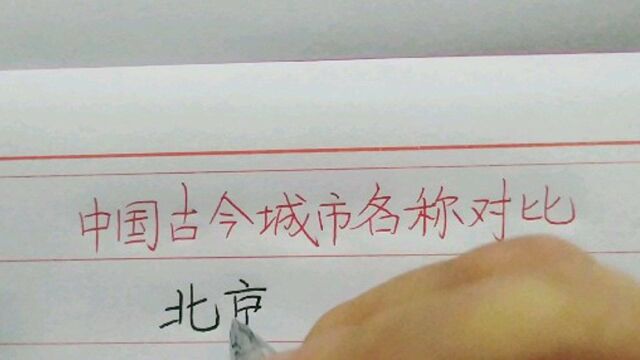 中国古今城市名称对比
北京